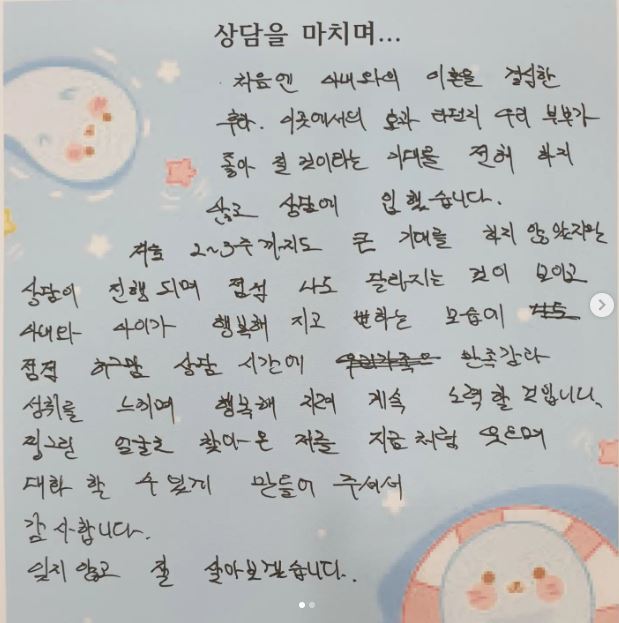 상담을 마치며...
처음엔 아내와의 이혼을 결심한
후라. 이곳에서의 효과 라던지 우리 부부가
좋아 질 것이라는 기대를 전혀 하지
않고 상담에 임했습니다.
처음 2~3주 까지도 큰 기대를 하지 않았지만
상담이 진행 되며 점점 나도 달라지는 것이 보이고
아내와 사이가 행복해 지고 변하는 모습에
점점 하루말 상담 시간에 만족감과
성취를 느끼며 행복해 지려 계속 노력할 것입니다.
찡그린 얼굴로 찾아온 저를 지금처럼 웃으며
대화 할 수 있게 만들어 주셔서
감사합니다.
잊지 않고 잘 살아보겠습니다.